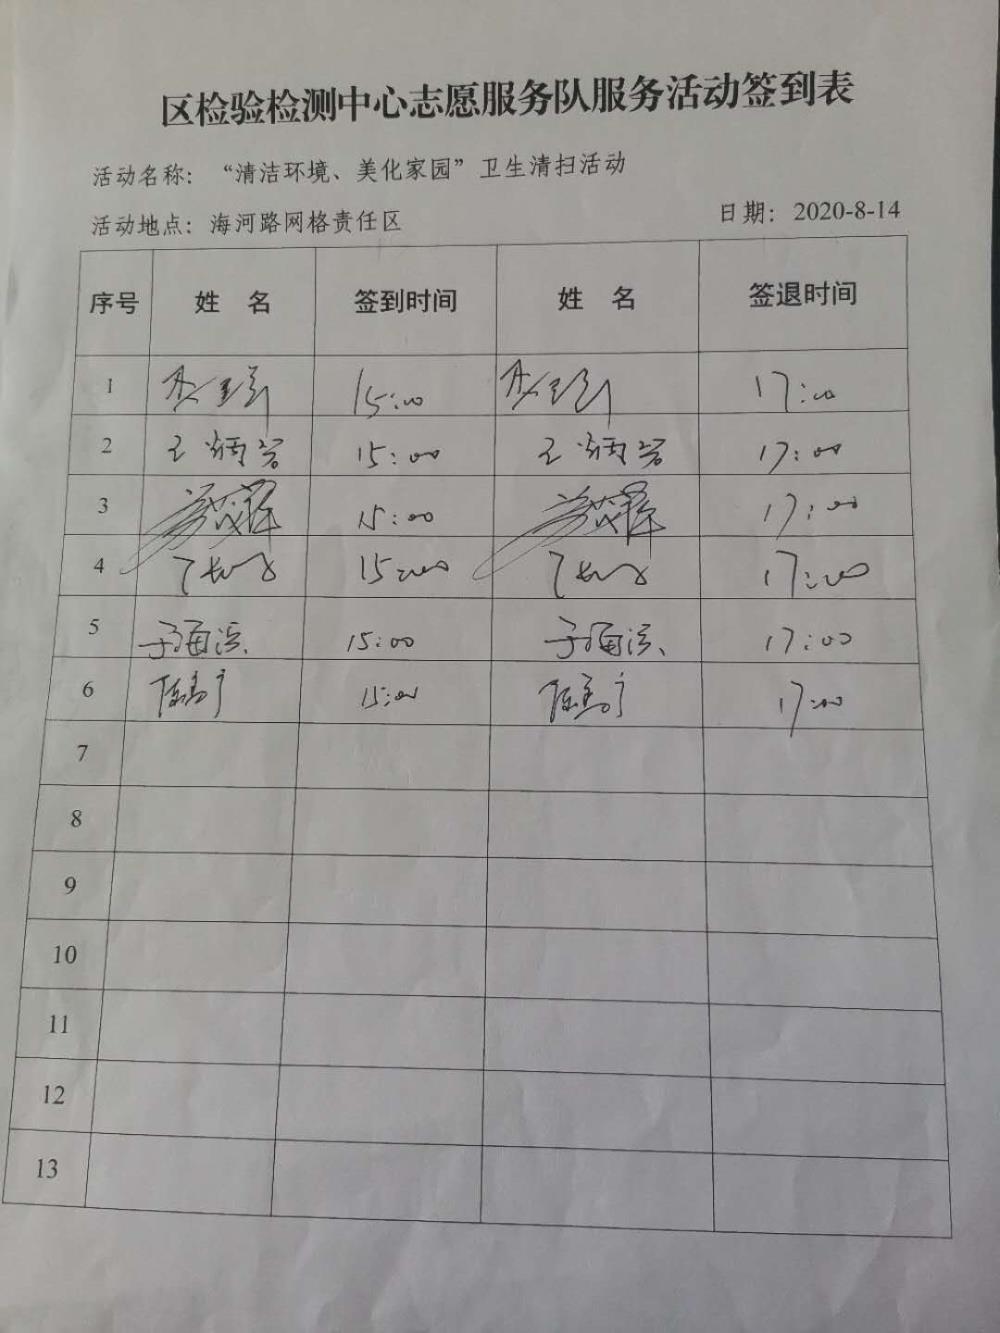 区检验检测中心志愿服务队服务活动签到表
活动名称：“清洁环境、美化家园”卫生清扫活动
活动地点：海河路网格责任区 日期：2020-8-14
序号 姓 名 签到时间 姓 名 签退时间
1 15:00 17:00
2 王炳岩 15:00 王炳岩 17:00
3 15:00 17:00
4 15:00 17:00
5 于海滨 15:00 于海滨 17:00
6 15:00 17:00
7
8
9
10
11
12
13